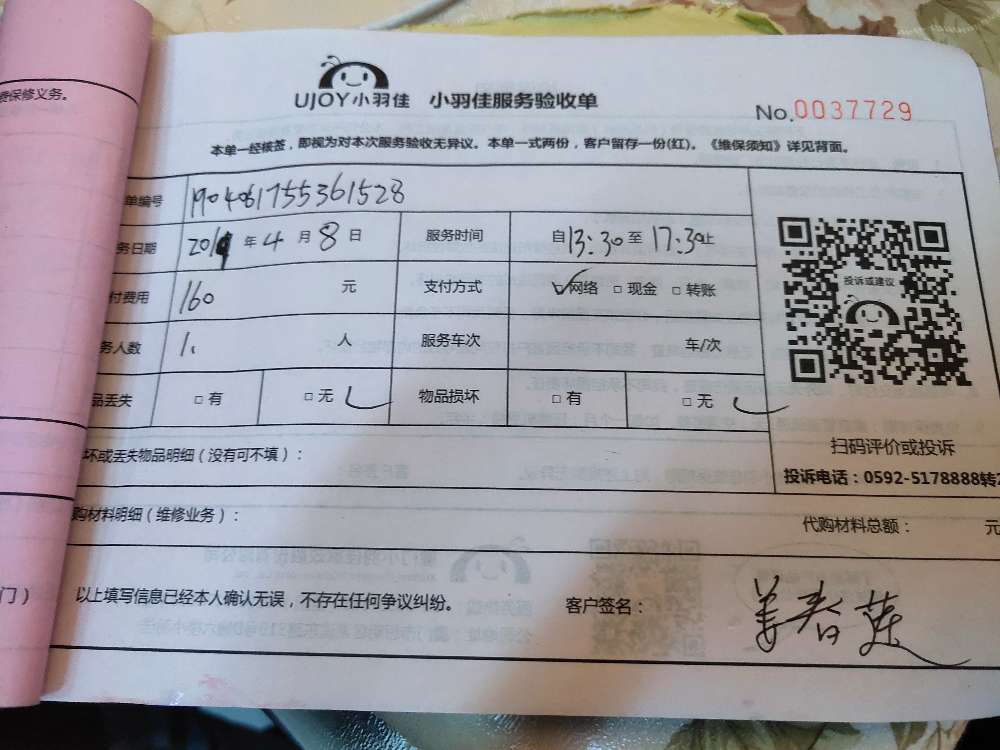 费保修义务。
UJOY小羽佳 小羽佳服务验收单
No.0037729
本单一经核签，即视为对本次服务验收无异议。本单一式两份，客户留存一份(红)。《维保须知》详见背面。
单编号 1904081755361528
务日期 2019 年 4 月 8 日 服务时间 自13:30至17:30止
付费用 160 元 支付方式 网络 □ 现金 □ 转账
务人数 1. 人 服务车次 车/次
品丢失 □ 有 □ 无 物品损坏 □ 有 □ 无
投诉或建议
扫码评价或投诉
投诉电话：0592-5178888转2
坏或丢失物品明细（没有可不填）：
购材料明细（维修业务）： 代购材料总额： 元
门）
以上填写信息已经本人确认无误，不存在任何争议纠纷。 客户签名： 姜春莲